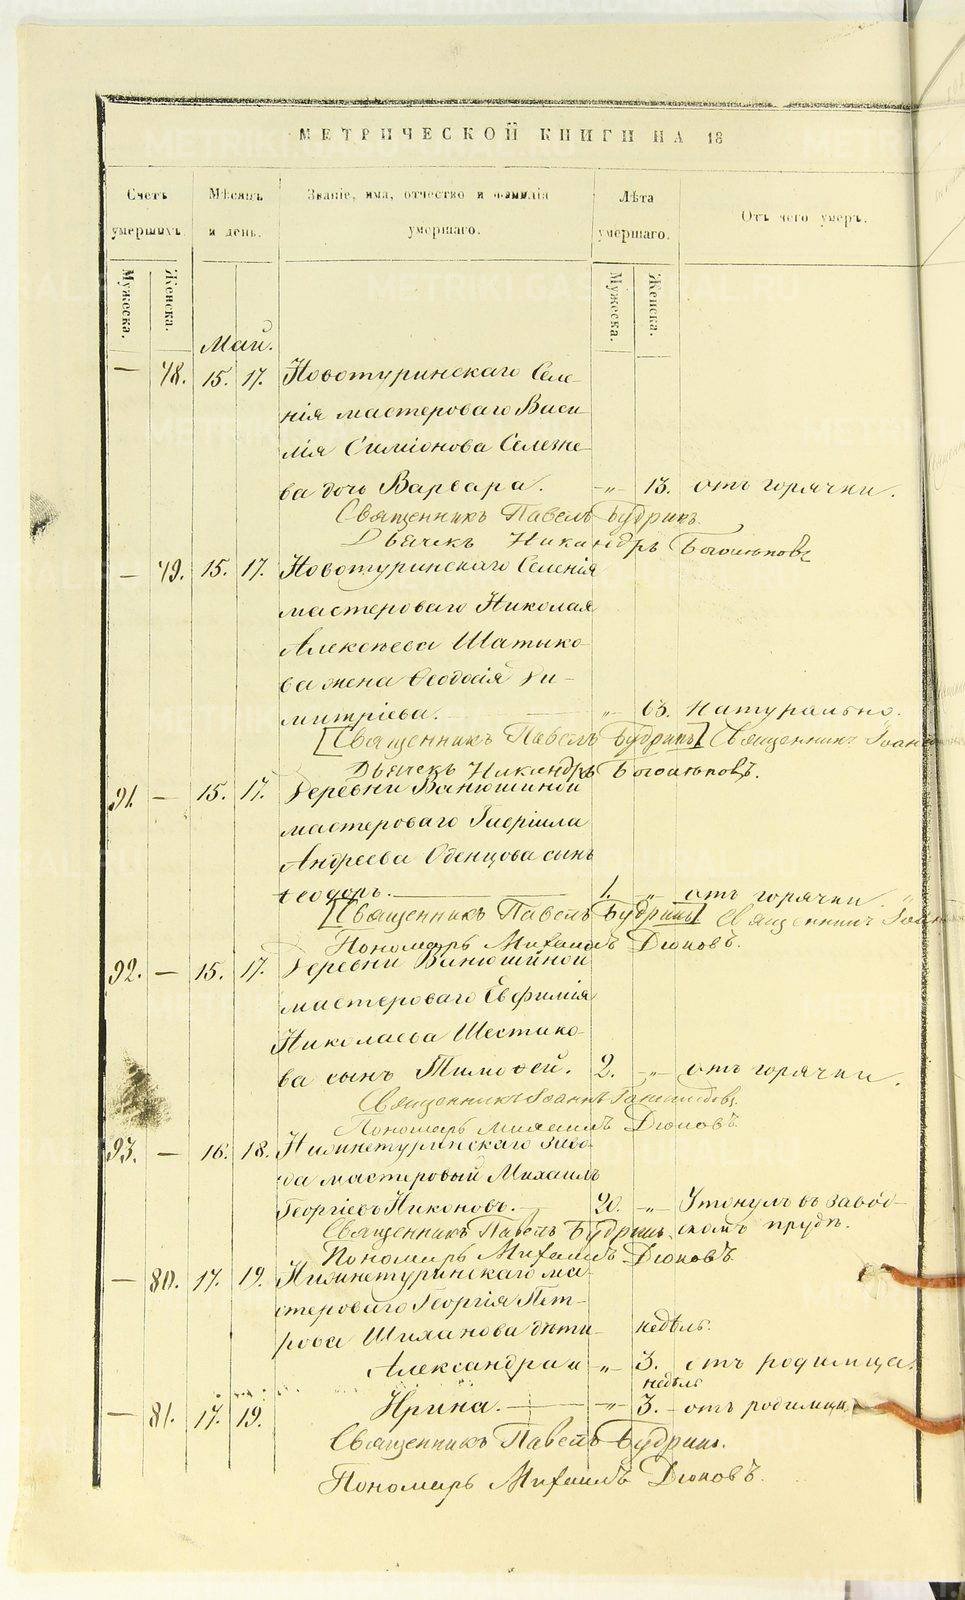 МЕТРИЧЕСКОЙ КНИГИ НА 18
Счетъ умершихъ.
Мѣсяцъ и день.
Званіе, имя, отчество и фамилія умершаго.
Лѣта умершаго.
Отъ чего умеръ.
Мужеска. Женска.
Мужеска. Женска.
Май.
— 78. 15. 17. Новотуринскаго Селе-
нія мастероваго Васи
лія Симіонова Селезне
ва дочь Варвара. -„- 13. отъ горячки.
Священникъ Павелъ Будринъ.
Дьячекъ Никандръ
— 79. 15. 17. Новотуринскаго Селенія
мастероваго Николая
Алексѣева
ва жена Ѳеодосія Ди-
митріева. „ 63. натурально.
[Священникъ Павелъ Будринъ] Священникъ Іоаннъ
Дьячекъ Никандръ
91. — 15. 17. Деревни Ванюшиной
мастероваго Гавріила
Андреева Оденцова сынъ
Ѳеодоръ. 1. „ отъ горячки.
[Священникъ Павелъ Будринъ] Священникъ
Пономарь Михаилъ Дюковъ.
92. — 15. 17. Деревни Ванюшиной
мастероваго Евфимія
Николаева Шестако-
ва сынъ Тимоѳей. 2. -„- отъ горячки.
Священникъ Іоаннъ
Пономарь Михаилъ Дюковъ.
93. — 16. 18. Нижнетуринскаго заво-
да мастеровый Михаилъ
Георгіевъ Никоновъ. 20. „ Утонулъ въ завод-
Священникъ Павелъ Будринъ. скомъ прудѣ.
Пономарь Михаилъ Дюковъ.
— 80. 17. 19. Нижнетуринскаго ма-
стероваго Георгія Пет-
рова дѣти недѣль.
Александра и „ 3. отъ родимца.
недѣль
— 81. 17. 19. Ирина. -„- 3. отъ родимца
Священникъ Павелъ Будринъ.
Пономарь Михаилъ Дюковъ.